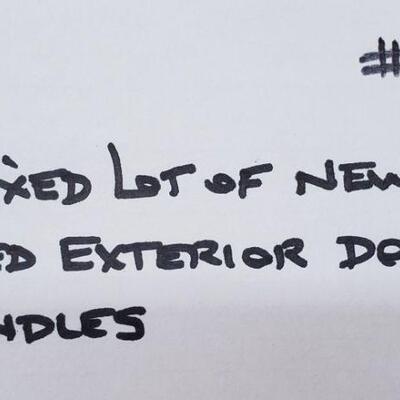 #
ixed Lot of New
ed Exterior Do
ndles